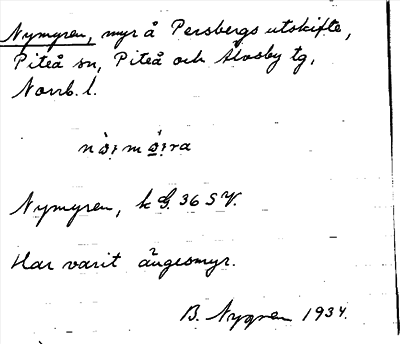 Nymyren, myr å Persbergs utskifte,
Piteå sn, Piteå och Älvsby tg,
Norrb. l.
Nymyren, k G. 36 S V.
Har varit ängesmyr.
B. Nygren 1934.